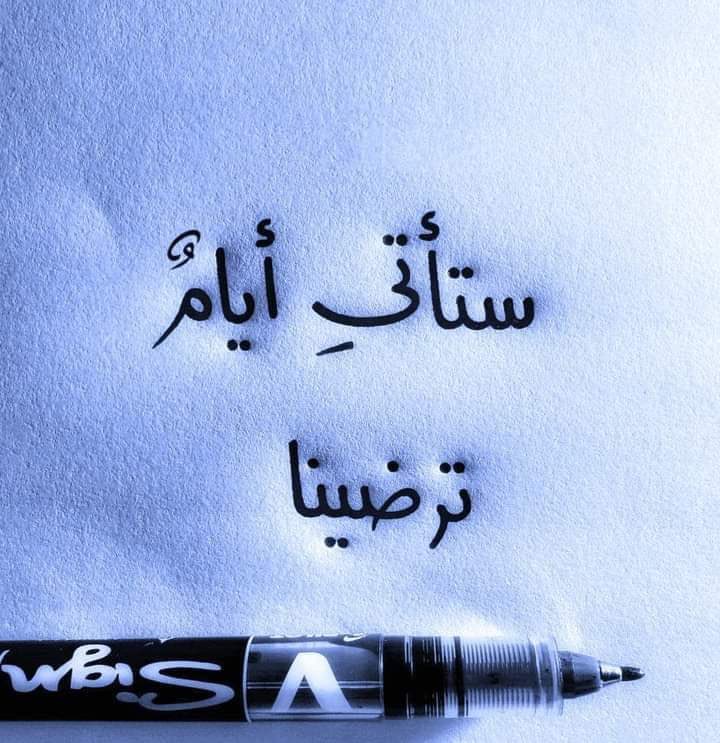 ستأتيِ أيامٌ
ترضينا
Sign
V